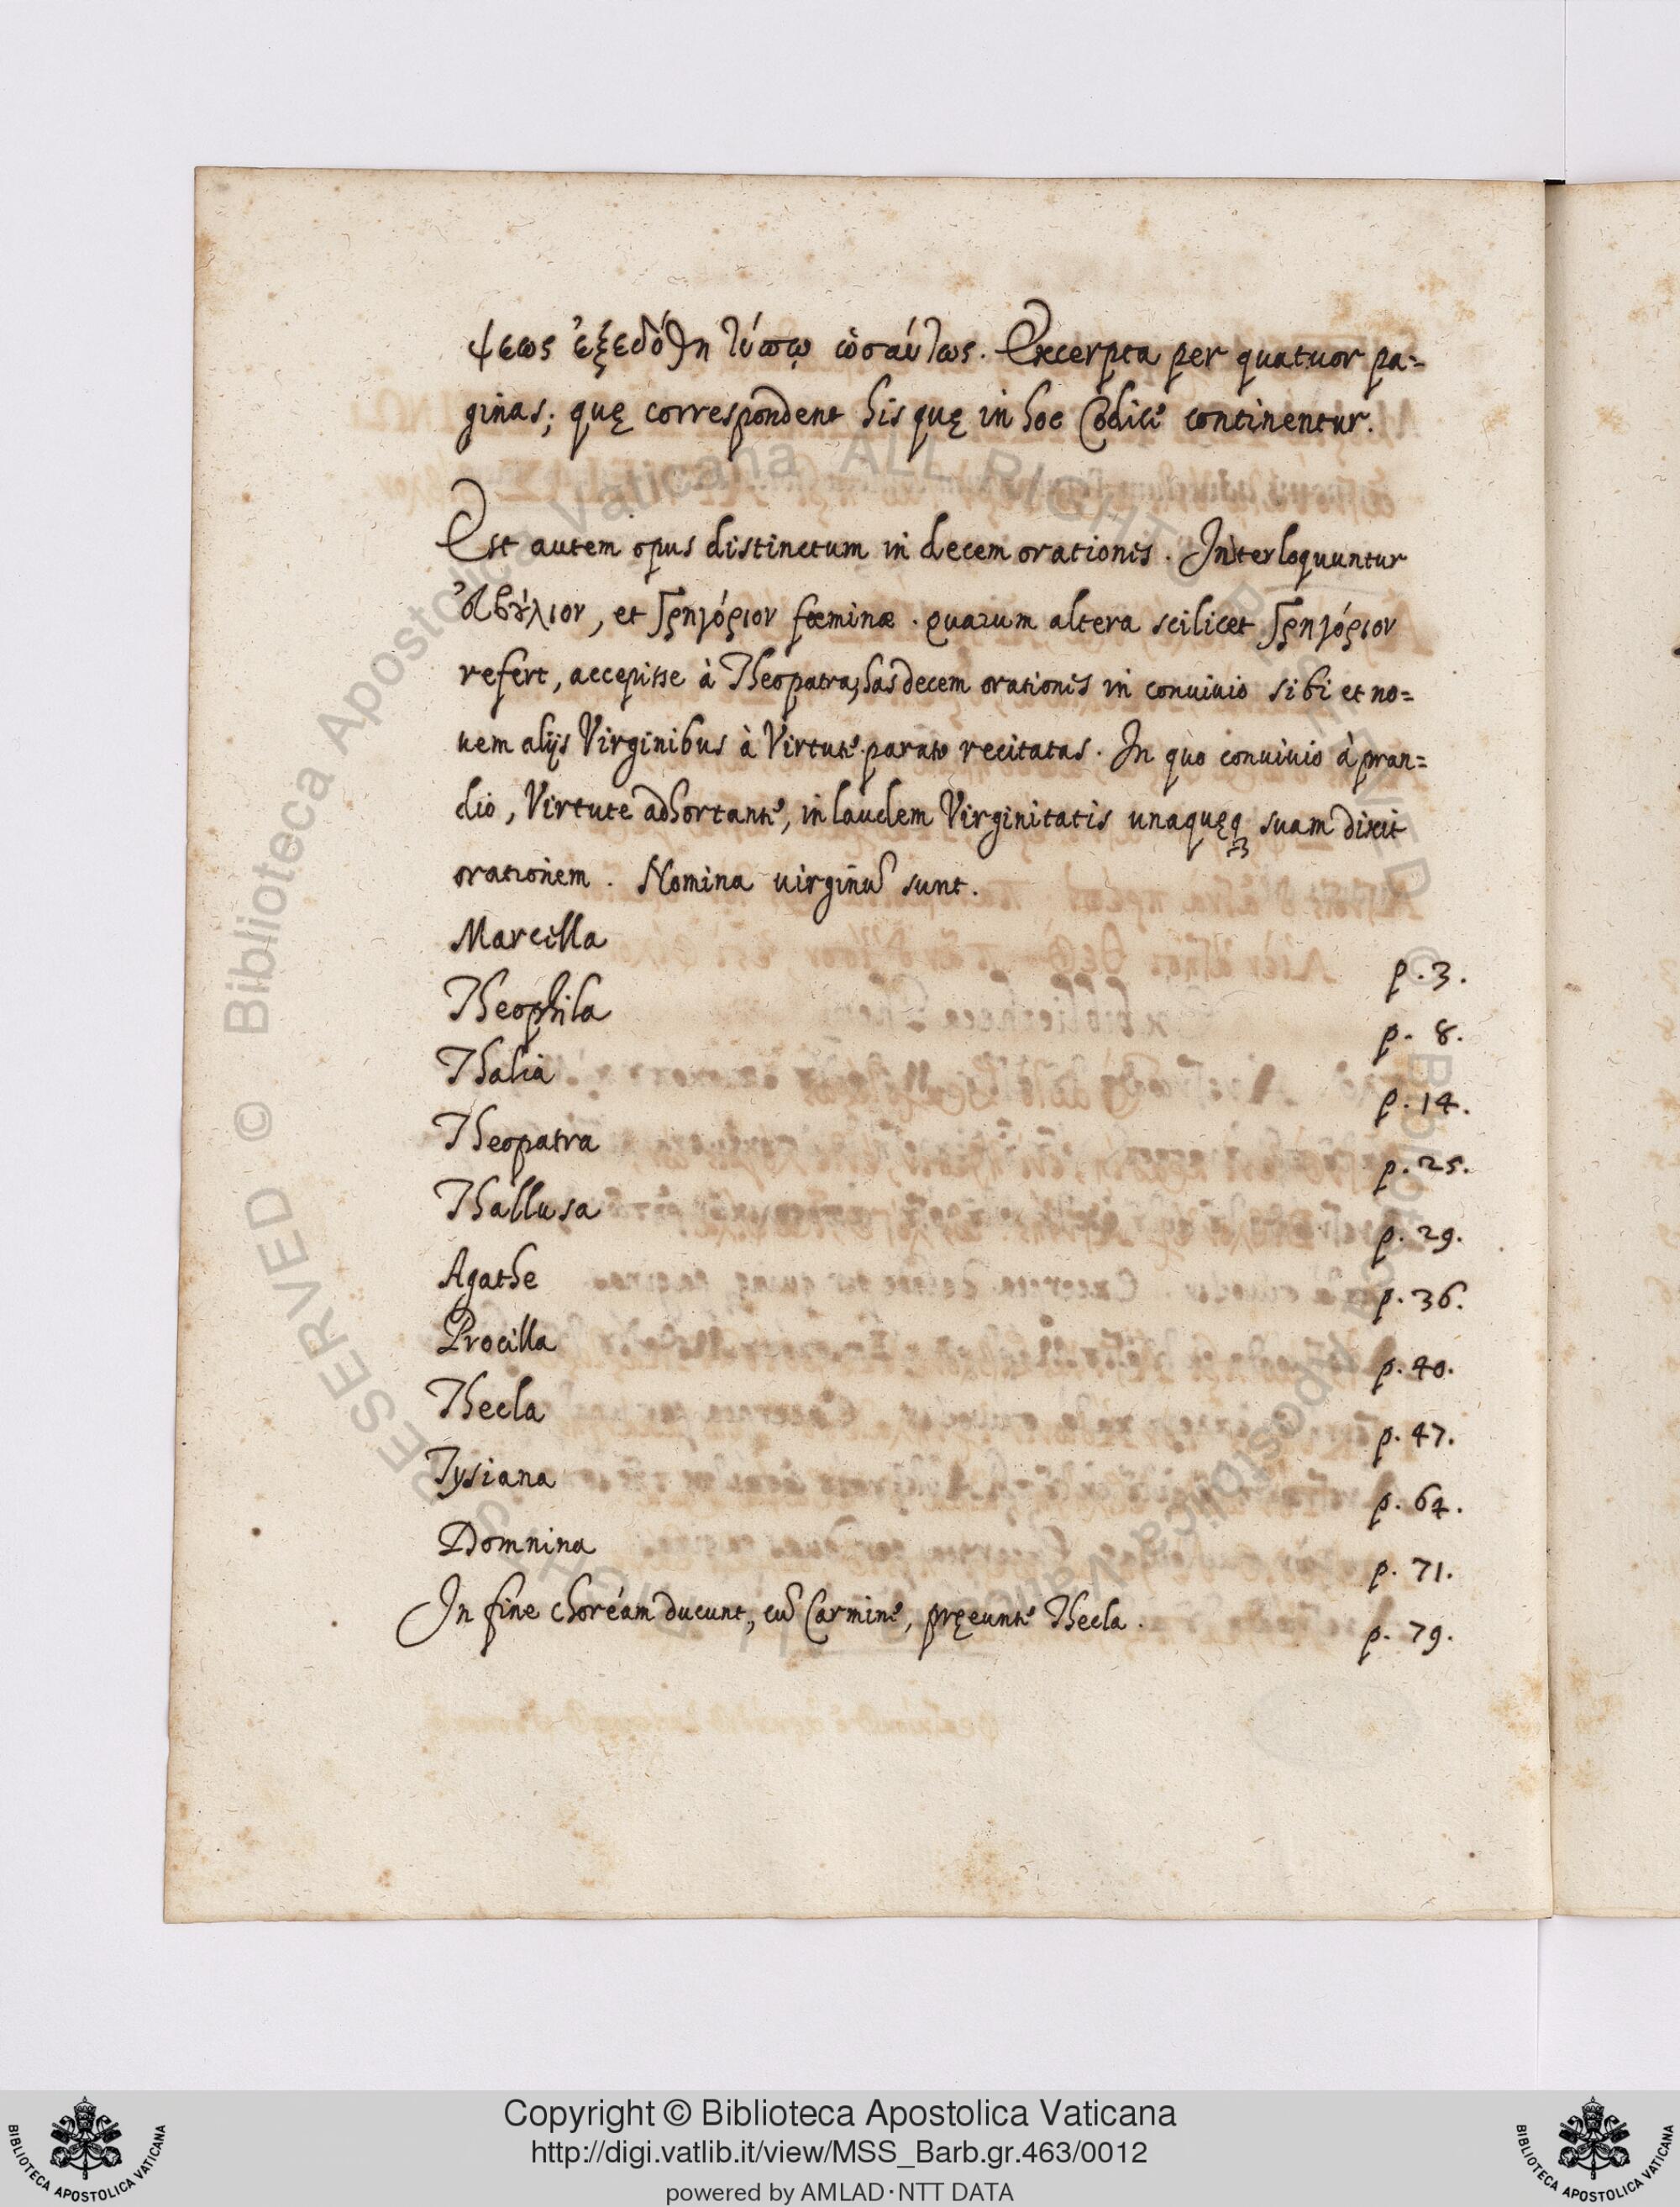 ψεως ἐξεδόθη τύπῳ ὡσαύτως. Excerpta per quatuor pa=
ginas; quę correspondent his quę in hoc Codice continentur.
Est autem opus distinctum in decem orationes. Interloquuntur
Ὀυβούλιον, et Γρηγόριον fœminæ. quarum altera scilicet Γρηγόριον
refert, accepisse à Theopatra, has decem orationes in conuiuio sibi et no=
uem alijs Virginibus à Virtute parato recitatas. In quo conuiuio à pran=
dio, Virtute adhortante, in laudem Virginitatis unaquęq; suam dixit
orationem. Nomina uirginũ sunt.
Marcilla p. 3.
Theophila p. 8.
Thalia p. 14.
Theopatra p. 25.
Thallusa p. 29.
Agathe p. 36.
Procilla p. 40.
Thecla p. 47.
Tysiana p. 64.
Domnina p. 71.
In fine choréam ducunt, cũ Carmine, pręeunte Thecla. p. 79.
© Biblioteca Apostolica Vaticana ALL RIGHTS RESERVED
Copyright © Biblioteca Apostolica Vaticana
http://digi.vatlib.it/view/MSS_Barb.gr.463/0012
powered by AMLAD·NTT DATA
BIBLIOTECA APOSTOLICA VATICANA
BIBLIOTECA APOSTOLICA VATICANA